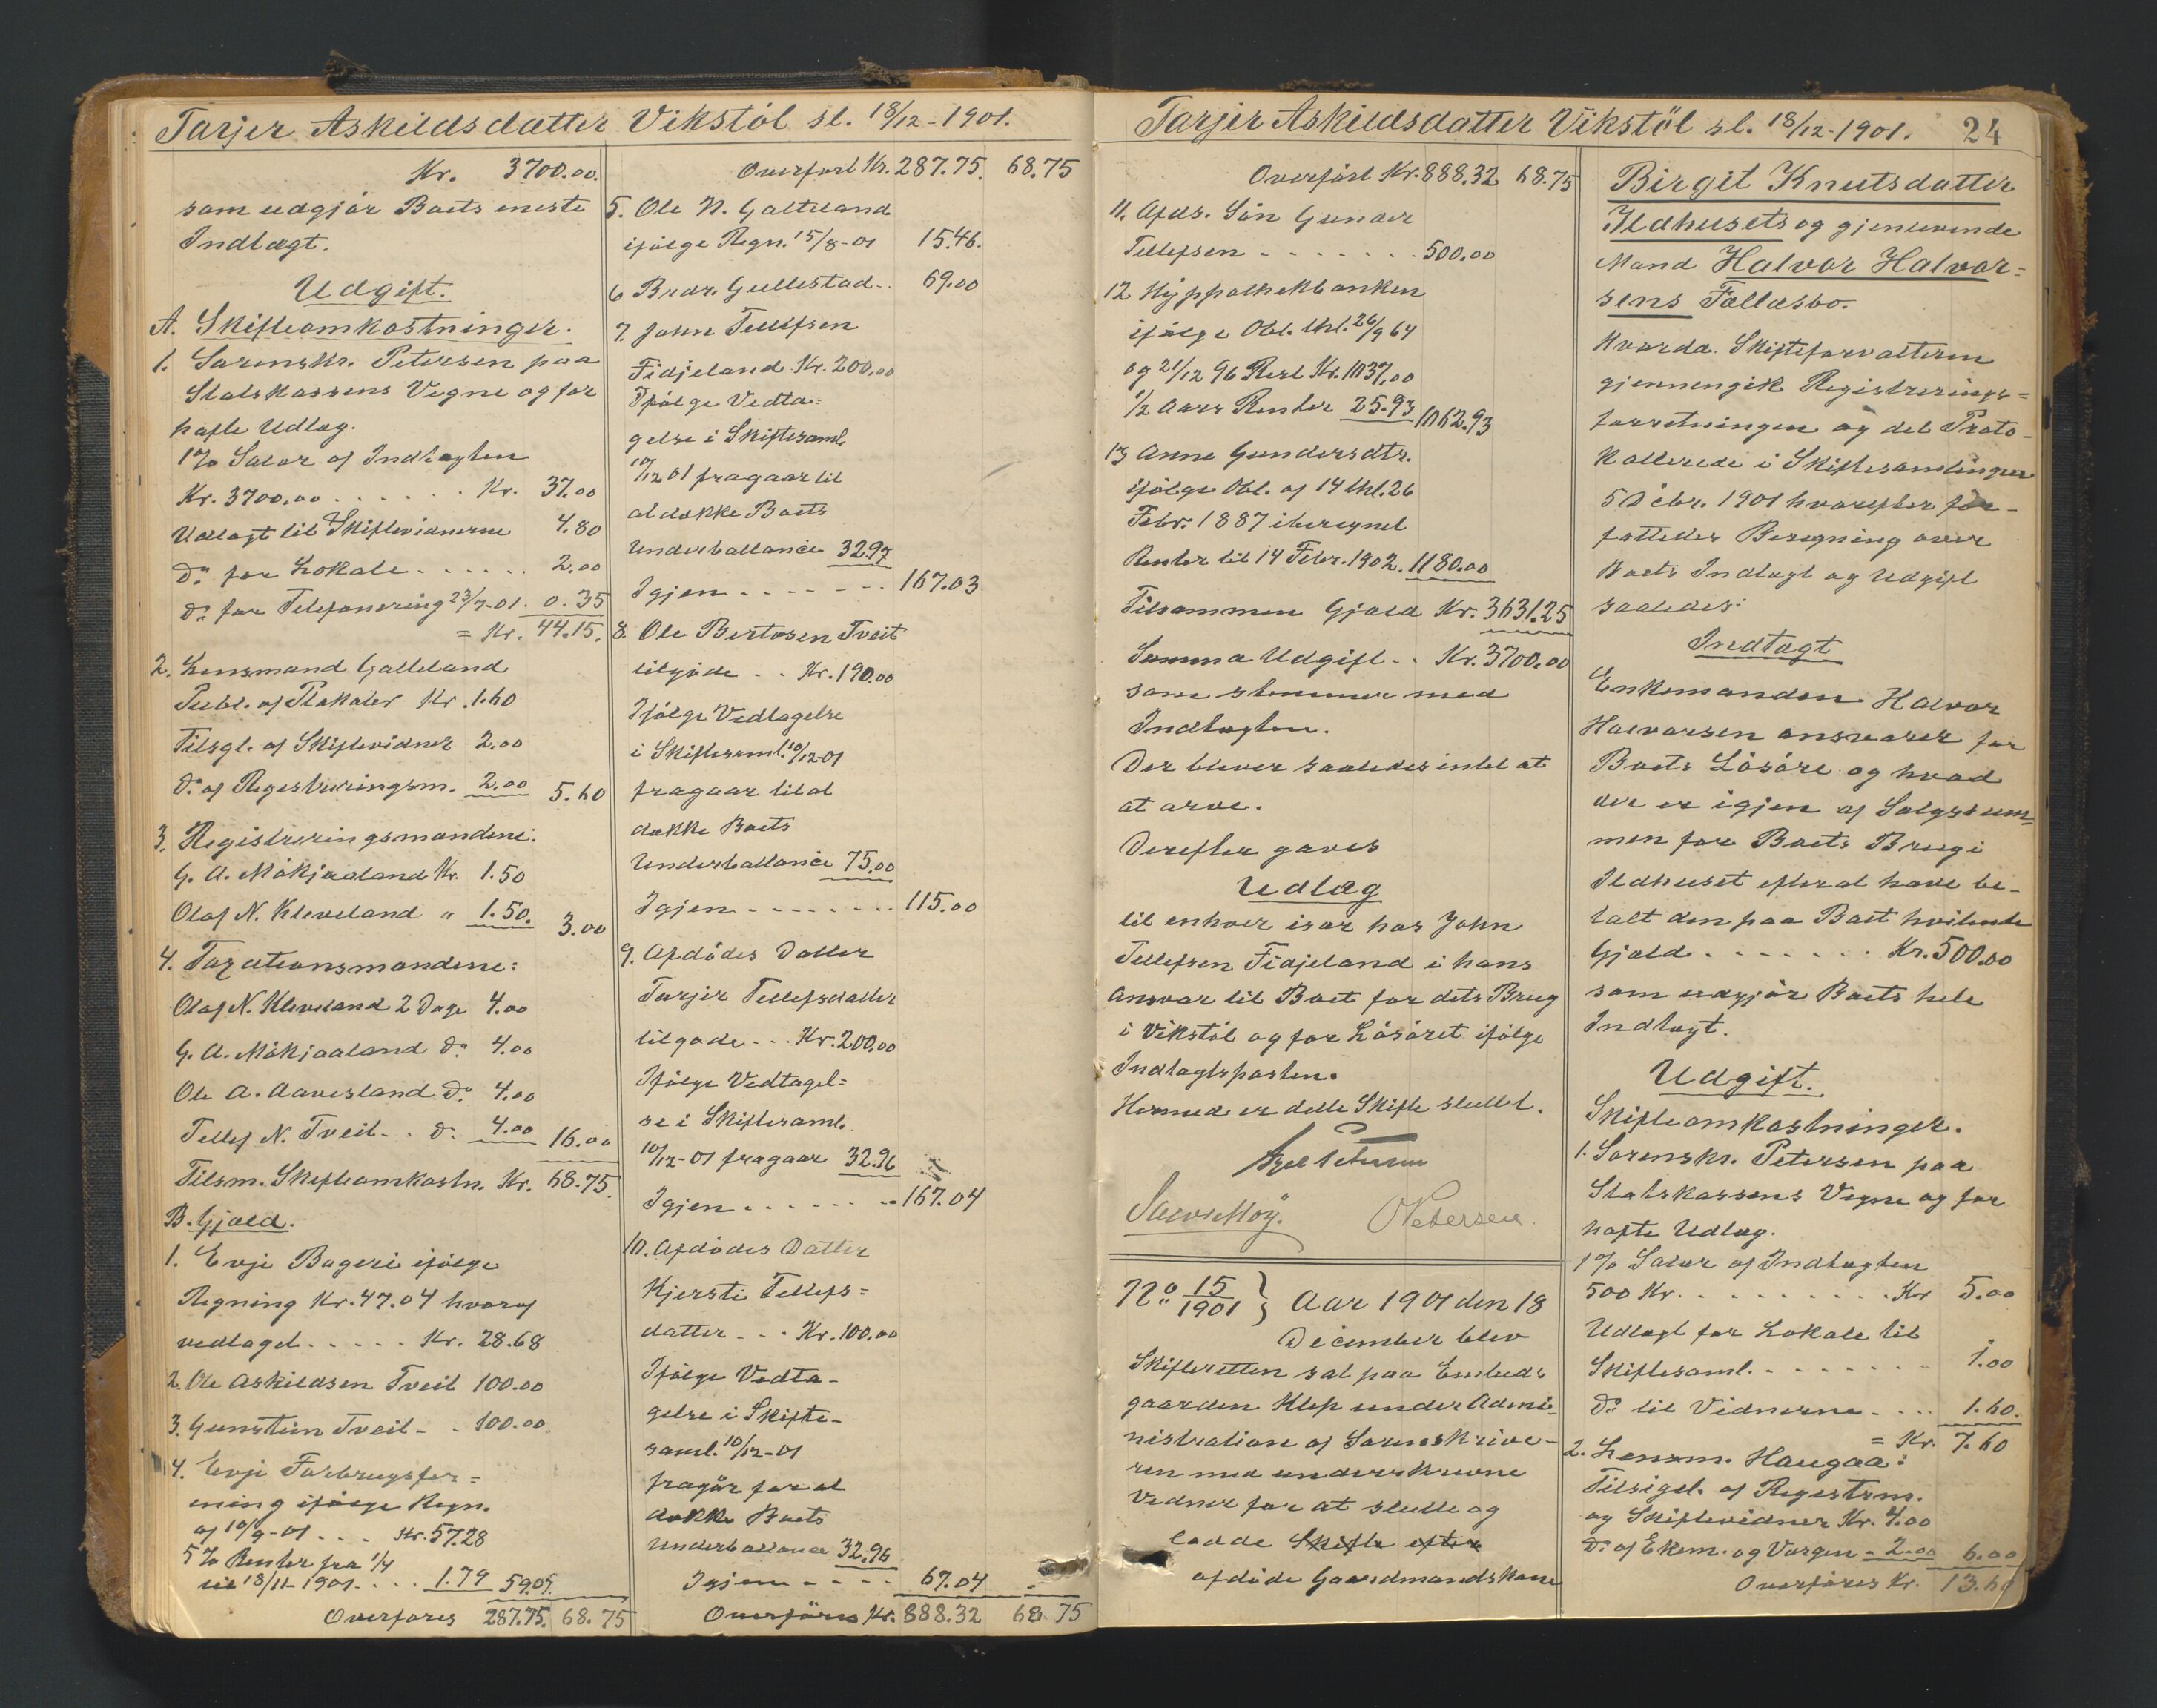 Tarjer Askildsdatter Vikstöl sl. 18/12-1901.
Kr. 3700.00.
som udgjör Boets eneste
Indtægt.
Udgift.
A. Skifteomkostninger.
1. Sorenskr. Petersen paa
Statskassens Vegne og for
hafte Udlæg.
1% Salær af Indtægten
Kr. 3700.00 . . . . . . Kr. 37.00
Udlagt til Skiftevidnerne 4.80
Do for Lokale . . . . . . 2.00
Do for Telefonering 23/7-01. 0.35
= Kr. 44.15.
2. Lensmand Galteland
Publ. af Plakater Kr. 1.60
Tilsgl. af Skiftevidner 2.00
Do af Registreringsm. 2.00 5.60
3. Registreringsmændene:
G. A. Mökjaaland Kr. 1.50
Olaf N. Kleveland " 1.50. 3.00
4. Taxationsmændene:
Olaf N. Kleveland 2 Dage 4.00
G. A. Mökjaaland Do 4.00
Ole A. Aavesland Do 4.00
Tellef N. Tveit . . Do 4.00 16.00
Tilsm. Skifteomkostn. Kr. 68.75.
B. Gjæld.
1. Evje Bageri ifölge
Regning Kr. 47.04 hvoraf
vedtaget . . . . . Kr. 28.68
2. Ole Askildsen Tveit 100.00
3. Gunstein Tveit - . 100.00
4. Evje Forbrugsfor=
ening ifölge Regn.
af 10/9-01 . . . Kr. 57.28
5% Renter fra 1/4
til 18/11-1901 . . . . 1.79 59.07.
Overföres 287.75. 68.75
Overfört Kr. 287.75. 68.75
5. Ole N. Galteland
ifölge Regn. 15/8-01 15.46.
6 Brdr. Gullestad . . 69.00
7. John Tellefsen
Fidjeland Kr. 200.00
Ifölge Vedta=
gelse i Skiftesaml.
10/12 01 fragaar til
at dække Boets
Underballance 32.97
Igjen . . . . . . . 167.03
8. Ole Bertosen Tveit
tilgode . . Kr. 190.00
Ifölge Vedtagelse
i Skiftesaml. 10/12-01
fragaar til at
dække Boets
Underballance 75.00
Igjen . . . . . . . . 115.00
9. Afdödes Datter
Tarjer Tellefsdatter
tilgode . . . Kr. 200.00
Ifölge Vedtagel=
se i Skiftesaml.
10/12-01 fragaar 32.96
Igjen . . . . . . . . 167.04
10. Afdödes Datter
Kjersti Tellefs=
datter . . . Kr. 100.00
Ifölge Vedta-
gelse i Skifte-
saml. 10/12-01
fragår for at
dække Boets
Underballance 32.96
Igjen . . . . 67.04
Overföres Kr. 888.32 68 75
Tarjer Askildsdatter Vikstöl sl. 18/12-1901. 24
Overfört Kr. 888.32 68.75
11. Afds. Sön Gunder
Tellefsen . . . . . . . 500.00
12 Hyppothekbanken
ifölge Obl. thl. 26/9 64
og 21/12 96 Rest Kr. 1037.00
1/2 Aars Renter 25.93 1062.93
13 Anne Gundersdtr.
ifölge Obl. af 14 thl. 26
Febr. 1887 iberegnet
Renter til 14 Febr. 1902. 1180.00
Tilsammen Gjæld Kr. 3631.25
Summa Udgift . . Kr. 3700.00
som stemmer med
Indtægten.
Der bliver saaledes intet at
at arve.
Derefter gaves
Udlæg
til enhver især hos John
Tellefsen Fidjeland i hans
Ansvar til Boet for dets Brug
i Vikstöl og for Lösöret ifölge
Indtægtsposten.
Hermed er dette Skifte sluttet.
Axel Petersen
OPetersen.
No 15/1901 } Aar 1901 den 18
December blev
Skifteretten sat paa Embeds
gaarden Klep under Admi-
nistration af Sorenskrive-
ren med underskrevne
Vidner for at slutte og
lodde Skifte efter
afdöde Gaardmandskone
Birgit Knutsdatter
Ildhusets og gjenlevende
Mand Halvor Halvor=
sens Fællesbo.
Hvorda. Skifteforvalteren
gjennemgik Registrerings=
forretningen og det Proto-
kollerede i Skiftesamlingen
5 Decbr. 1901 hvorefter for-
fattedes Beregning over
Boets Indtægt og Udgift
saaledes:
Indtægt
Enkemanden Halvor
Halvorsen ansvarer for
Boets Lösöre og hvad
der er igjen af Salgssum=
men for Boets Brug i
Ildhuset efter at have be-
talt den paa Boet hvilende
Gjæld . . . . . . . Kr. 500.00
som udgjör Boets hele
Indtægt.
Udgift.
Skifteomkostninger.
1. Sorenskr. Petersen paa
Statskassens Vegne og for
hafte Udlæg.
1% Salær af Indtægten
500 Kr. . . . . . . . . . Kr 5.00
Udlagt for Lokale til
Skiftesaml. . . . . . . . 1.00
Do til Vidnerne . . . . 1.60.
= Kr. 7.60
2. Lensm. Haugaa:
Tilsigel. af Registrm.
og Skiftevidner Kr. 4.00
Do af Ekem. og Værgen . 2.00 6.00
Overföres Kr. 13.60